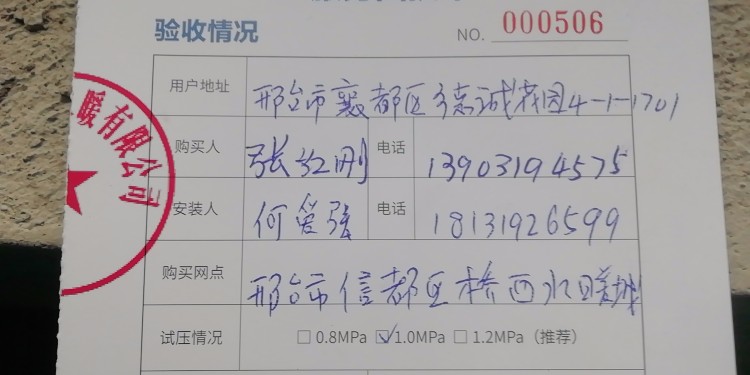 验收情况
NO. 000506
用户地址 邢台市襄都区德诚花园4-1-1701
购买人 张红刚 电话 13903194575
安装人 何爱强 电话 18131926599
购买网点 邢台市信都区桥西水暖城
试压情况 □0.8MPa ☑1.0MPa □1.2MPa（推荐）
暖有限公司